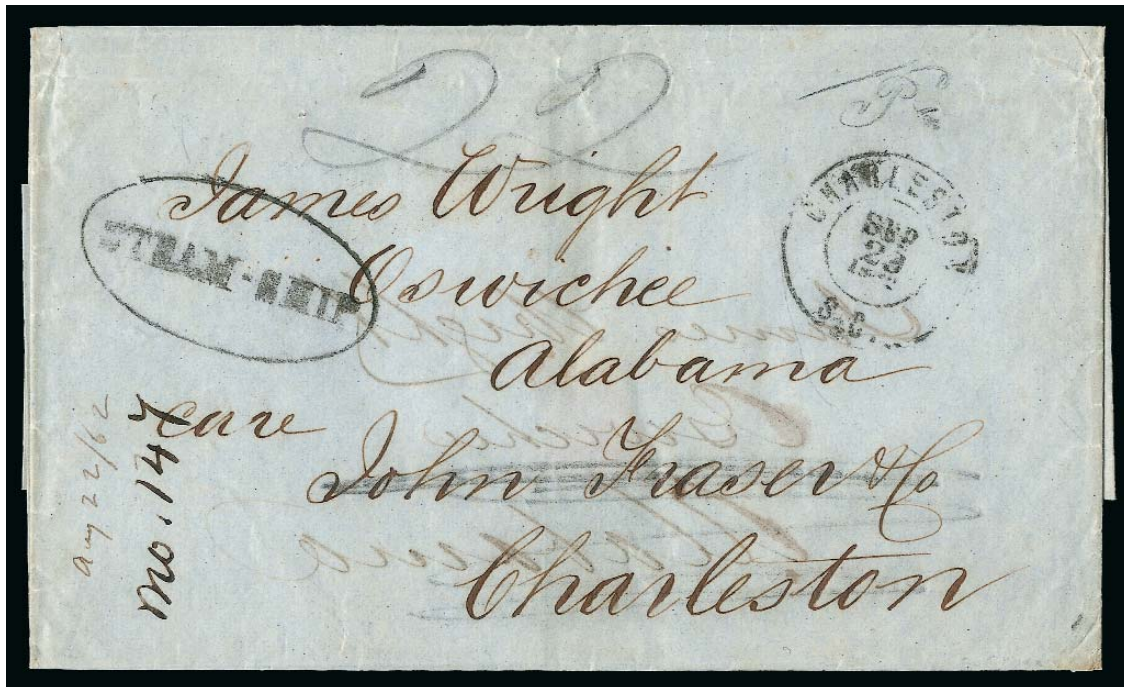 22
James Wright
Oswichee
Alabama
care
John Fraser & Co
Charleston
STEAM-SHIP
CHARLESTON
SEP
S.C.
Aug 22/62
no. 147